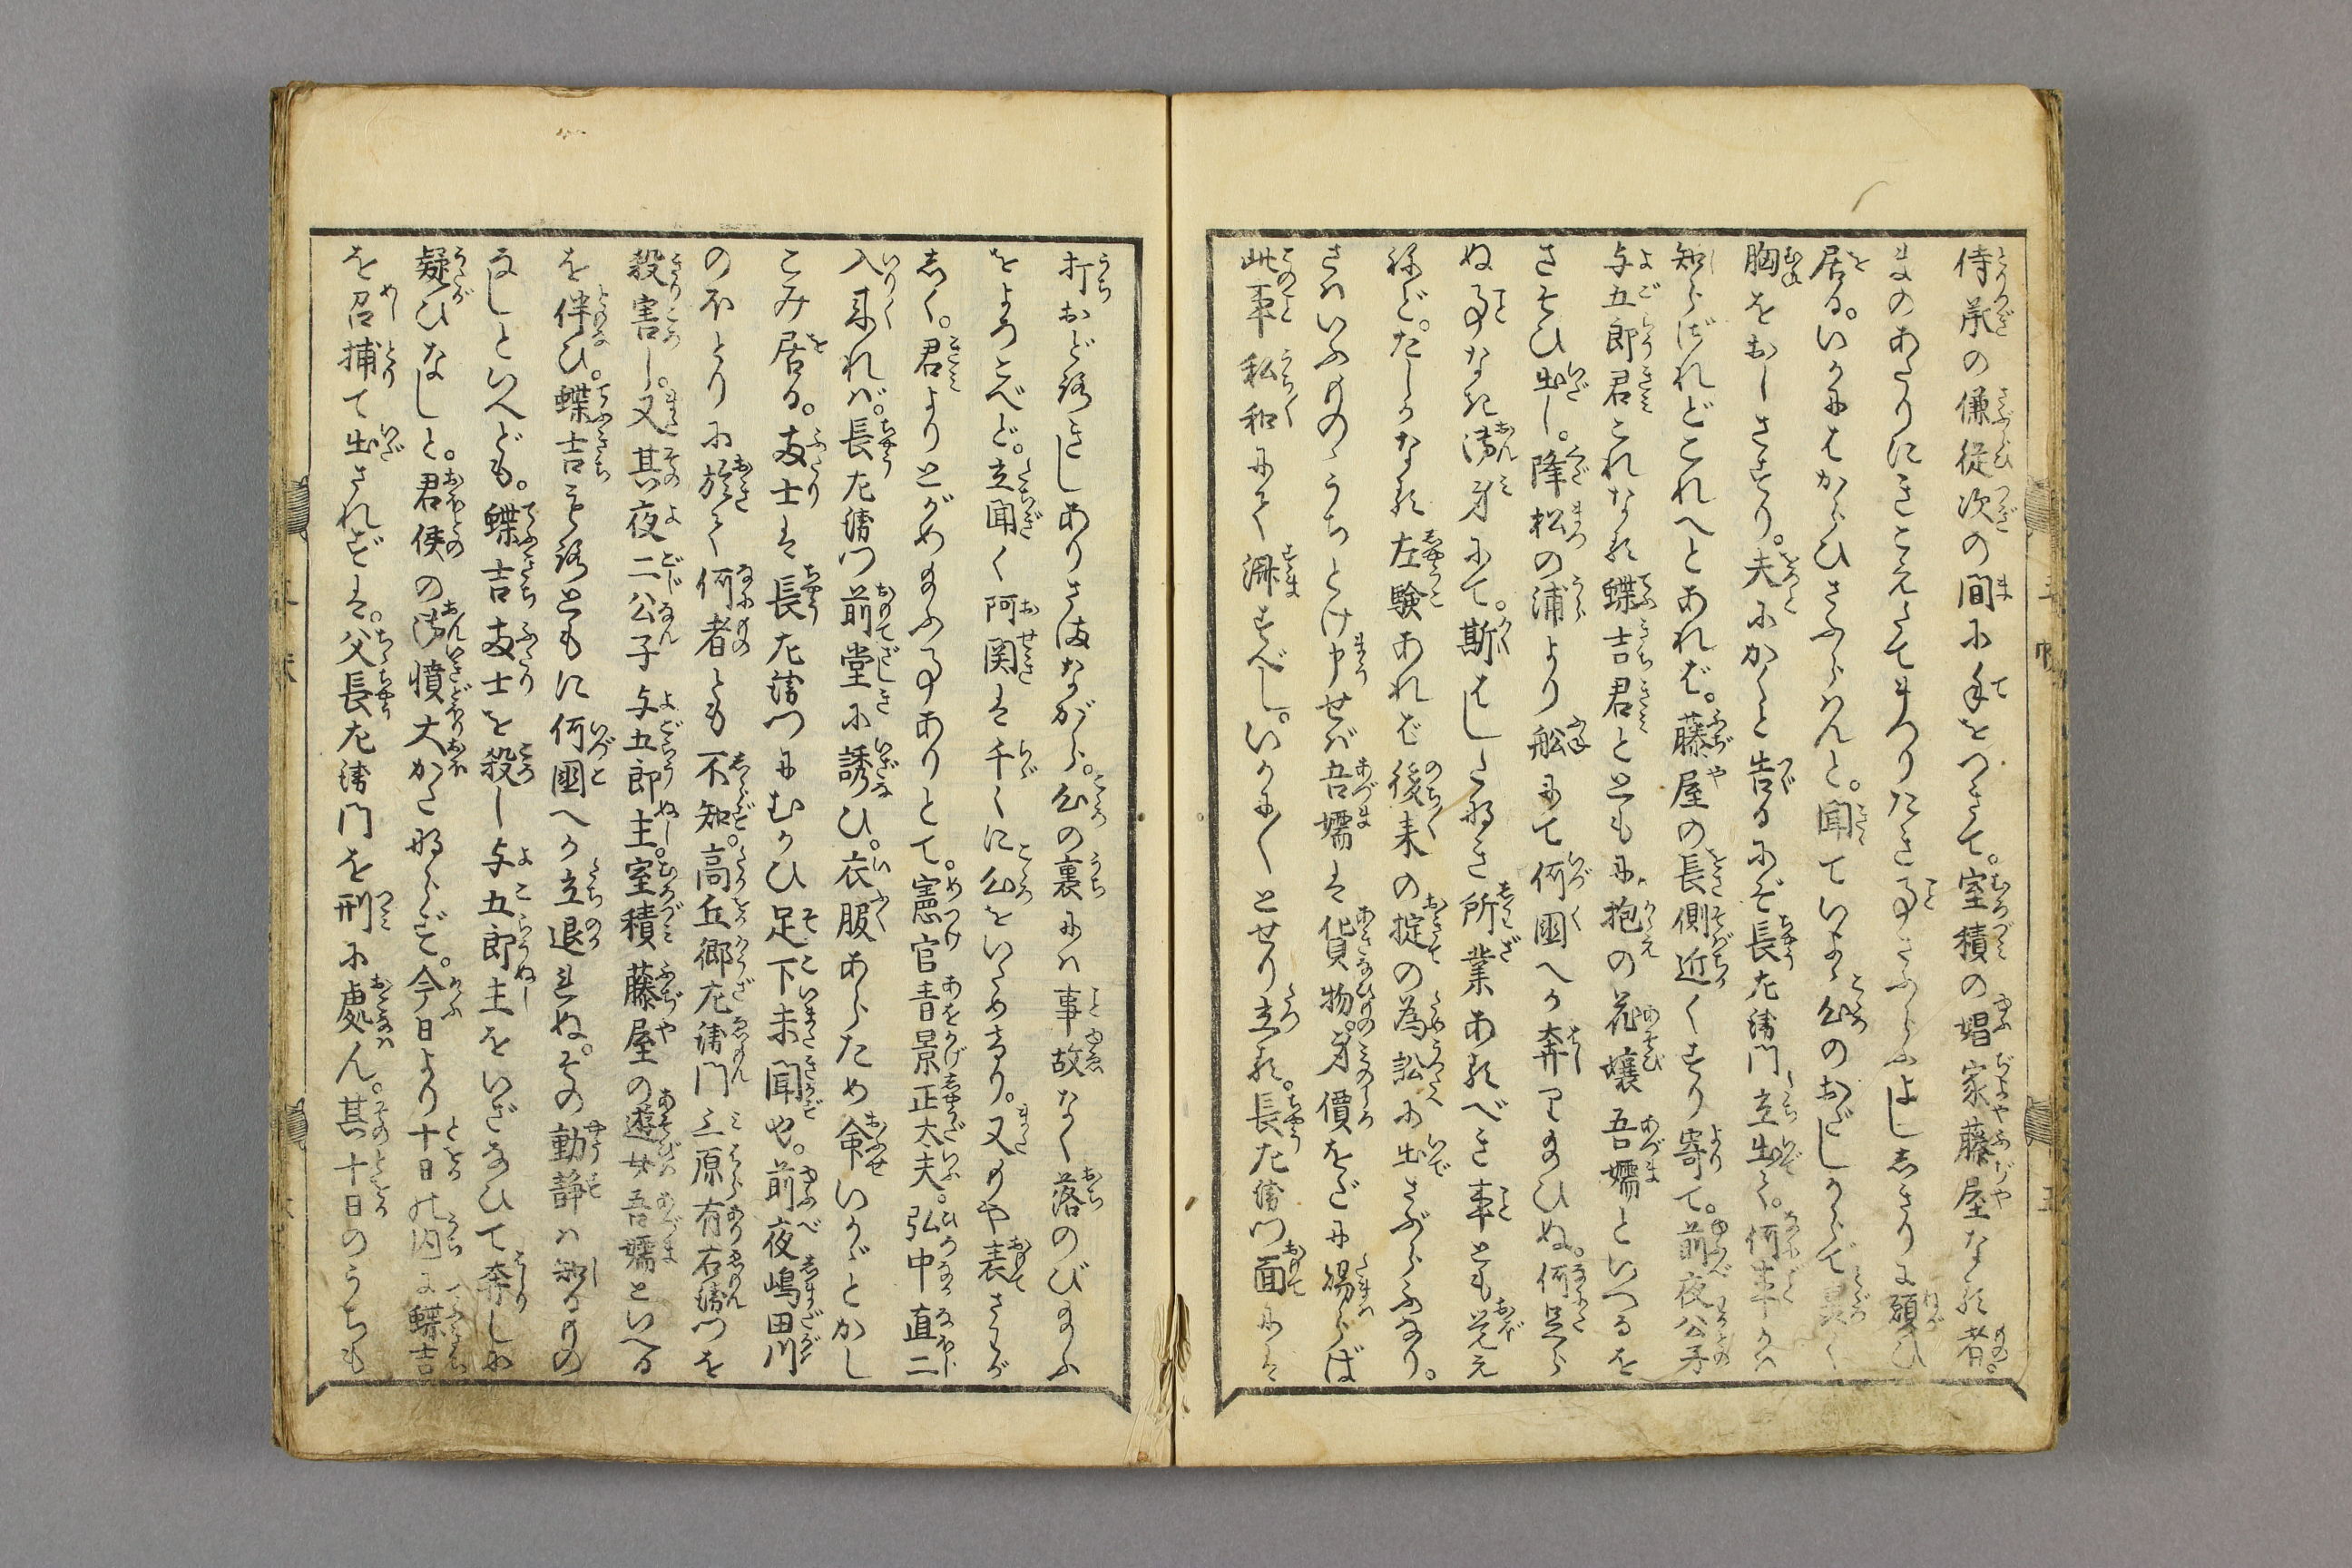 侍承の傔従次の間に手をつきて。室積の娼家藤屋なる者。
まのあたりにきこえたてまつりたき事さふらふよししきりに願ひ
居る。いかにはからひさふらはんと。聞ていよゝ心のおだしからで裏く
胸をおしさすり。夫にかくと告るにぞ長左衛門立出て。何事かは
知らざれどこれへとあれば。藤屋の長側近くすり寄て。前夜公子
与五郎君これなる蝶吉君とともに。抱の花嬢吾嬬といへるを
さそひ出し。降松の浦より舩にて何國へか奔りまひぬ。何足ら
ぬ事なき御身にて。斯はしたなき所業あるべき事とも覚え
ねど。たしかなる左験あれば後来の掟の為訟に出さぶらふなり。
さはいふものゝうちとけ申せば吾嬬は貨物。身價をだに賜らば
此事私和にて渊すべし。いかに〳〵とせり立る。長左衛門面には
打おどろきしありさまながら。心の裏には事故なく落のびまふ
をよろこべど。立聞く阿関は千〻に心をいためけり。又もや表さわが
しく。君よりとがめまふ事ありとて。憲官青景正大夫。弘中直二
入来れば。長左衛門前堂に誘ひ。衣服あらため命いかゞとかし
こみ居る。両士は長左衛門にむかひ足下未聞や。前夜嶋田川
のほとりに於て何者とも不知。高丘郷左衛門三原有右衛門を
殺害し。又其夜二公子与五郎主。室積藤屋の遊女吾嬬といへる
を伴ひ。蝶吉もろともに何國へか立退ぬ。その動静は知るもの
なしといへども。蝶吉両士を殺し与五郎主をいざなひて奔しに
疑ひなしと。君侯の御憤大かたならず。今日より十日の内に蝶吉
を召捕て出されずは。父長左衛門を刑に處ん。其十日のうちも